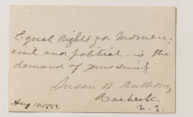 Equal Rights for Women;
civil and political - is the
demand of yours truly
Susan B. Anthony,
Rochester
N.Y.
Aug